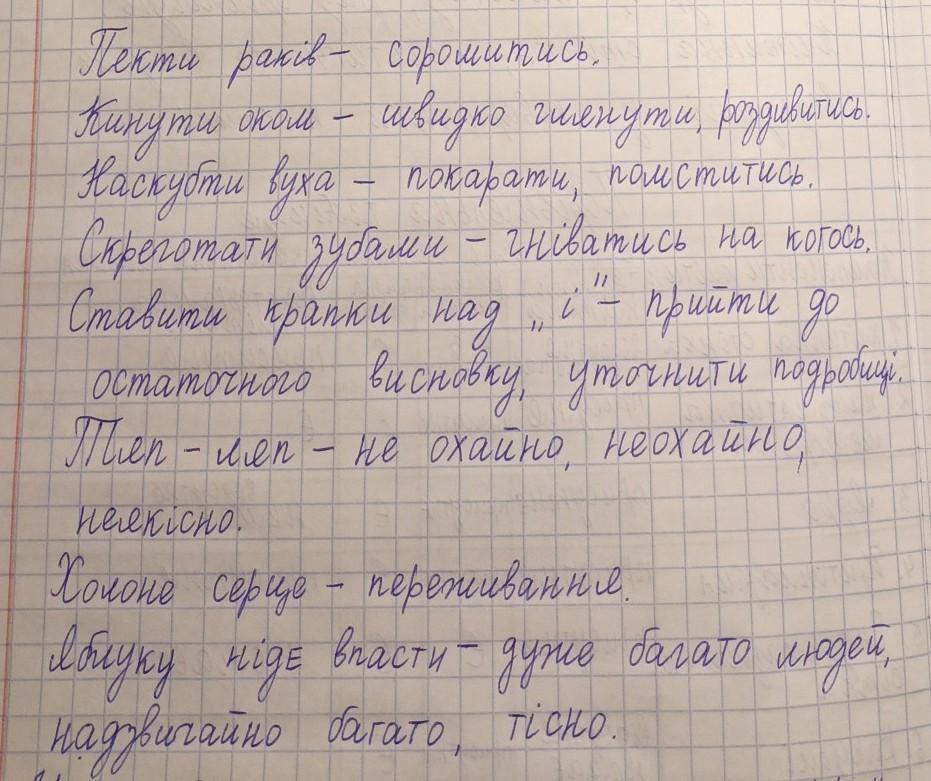 Пекти раків – соромитись.
Кинути оком – швидко глянути, роздивитись.
Наскубти вуха – покарати, помститись.
Скреготати зубами – гніватись на когось.
Ставити крапки над „і" – прийти до
остаточного висновку, уточнити подробиці.
Тяп – ляп – не охайно, неохайно,
неякісно.
Холоне серце – переживання.
Яблуку ніде впасти – дуже багато людей,
надзвичайно багато, тісно.